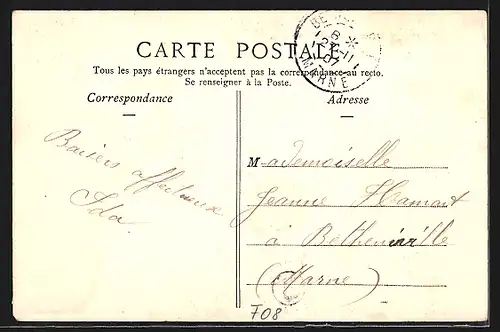 CARTE POSTALE
Tous les pays étrangers n'acceptent pas la correspondance au recto.
Se renseigner à la Poste.
Correspondance
Adresse
MARNE
Baisers affectueux
Ida
Mademoiselle
Jeanne
à Betheniville
(Marne)
F08